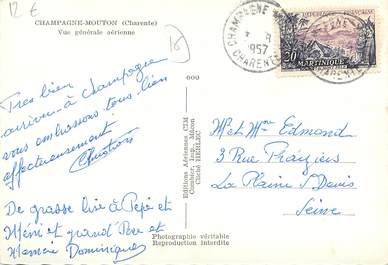 12 €
CHAMPAGNE-MOUTON (Charente)
Vue générale aérienne
Très bien
arrivons à Champagne
vous embrassons tous bien
affectueusement
De grosse bise à Pépé et
Mémé et grand Père et
Mémère Dominique
Editions Aériennes CIM
Combier, Imp., Mâcon
Cliché HERLEC
Photographie véritable
Reproduction Interdite
CHAMPAGNE
1957
CHARENTE
POSTES FRANÇAISE
20F
MARTINIQUE
M et Mme Edmond
3 Rue
La Plaine St Denis
Seine